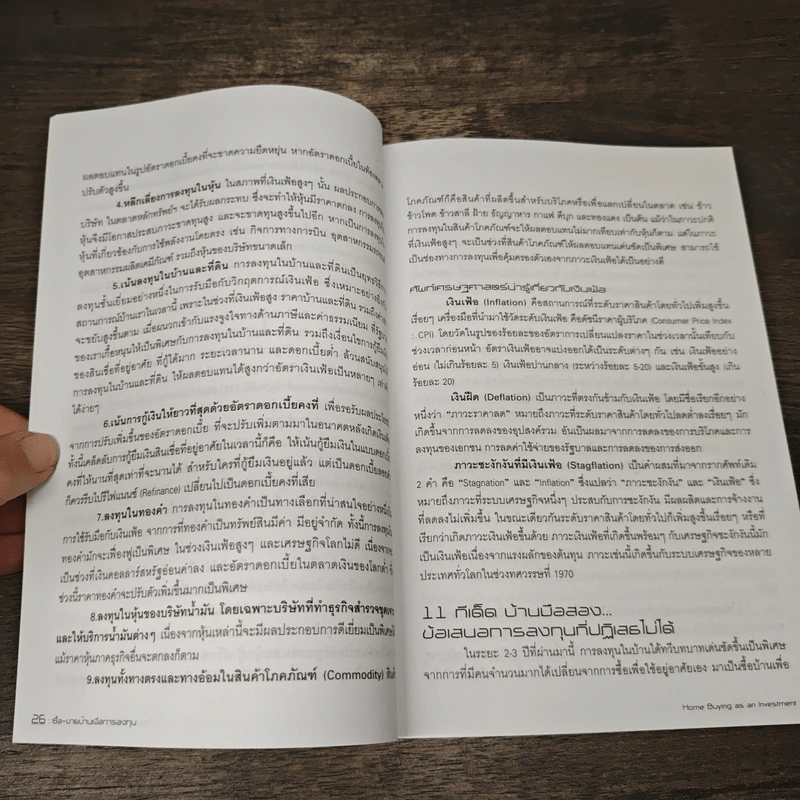 ผลตอบแทนในรูปอัตราดอกเบี้ยคงที่จะขาดความยืดหยุ่น หากอัตราดอกเบี้ยในท้องตลาด
ปรับตัวสูงขึ้น
4.หลีกเลี่ยงการลงทุนในหุ้น ในสภาพที่เงินเฟ้อสูงๆ นั้น ผลประกอบการของ
บริษัท ในตลาดหลักทรัพย์ฯ จะได้รับผลกระทบ ซึ่งจะทำให้หุ้นมีราคาตกลง การลงทุนใน
หุ้นจึงมีโอกาสประสบภาวะขาดทุนสูง และจะขาดทุนสูงขึ้นไปอีก หากเป็นการลงทุนใน
หุ้นที่เกี่ยวข้องกับการใช้พลังงานโดยตรง เช่น กิจการทางการบิน อุตสาหกรรมรถยนต์
อุตสาหกรรมผลิตเคมีภัณฑ์ รวมถึงหุ้นของบริษัทขนาดเล็ก
5.เน้นลงทุนในบ้านและที่ดิน การลงทุนในบ้านและที่ดินเป็นยุทธวิธีการ
ลงทุนชั้นเยี่ยมอย่างหนึ่งในการรับมือกับวิกฤตการณ์เงินเฟ้อ ซึ่งเหมาะอย่างยิ่งกับ
สถานการณ์บ้านเราในเวลานี้ เพราะในช่วงที่เงินเฟ้อสูง ราคาบ้านและที่ดิน รวมถึงค่าเช่า
จะขยับสูงขึ้นตาม เมื่อผนวกเข้ากับแรงจูงใจทางด้านภาษีและค่าธรรมเนียม ที่รัฐบาล
ของเราเกื้อหนุนให้เป็นพิเศษกับการลงทุนในบ้านและที่ดิน รวมถึงเงื่อนไขการกู้ยืมเงิน
ของสินเชื่อที่อยู่อาศัย ที่กู้ได้มาก ระยะเวลานาน และดอกเบี้ยต่ำ ล้วนสนับสนุนให้
การลงทุนในบ้านและที่ดิน ให้ผลตอบแทนได้สูงกว่าอัตราเงินเฟ้อเป็นหลายๆ เท่า
ได้ง่ายๆ
6.เน้นการกู้เงินให้ยาวที่สุดด้วยอัตราดอกเบี้ยคงที่ เพื่อรอรับผลประโยชน์
จากการปรับเพิ่มขึ้นของอัตราดอกเบี้ย ที่จะปรับเพิ่มตามมาในอนาคตหลังเกิดเงินเฟ้อ
ทั้งนี้เคล็ดลับการกู้ยืมเงินสินเชื่อที่อยู่อาศัยในเวลานี้ก็คือ ให้เน้นกู้ยืมเงินในแบบดอกเบี้ย
คงที่ให้นานที่สุดเท่าที่จะนานได้ สำหรับใครที่กู้ยืมเงินอยู่แล้ว แต่เป็นดอกเบี้ยลอยตัว
ก็ควรรีบไปรีไฟแนนซ์ (Refinance) เปลี่ยนไปเป็นดอกเบี้ยคงที่เสีย
7.ลงทุนในทองคำ การลงทุนในทองคำเป็นทางเลือกที่น่าสนใจอย่างหนึ่งใน
การใช้รับมือกับเงินเฟ้อ จากการที่ทองคำเป็นทรัพย์สินมีค่า มีอยู่จำกัด ทั้งนี้การลงทุนใน
ทองคำมักจะเฟื่องฟูเป็นพิเศษ ในช่วงเงินเฟ้อสูงๆ และเศรษฐกิจโลกไม่ดี เนื่องจาก
เป็นช่วงที่เงินดอลลาร์สหรัฐอ่อนค่าลง และอัตราดอกเบี้ยในตลาดเงินของโลกต่ำ
ช่วงนี้ราคาทองคำจะปรับตัวเพิ่มขึ้นมากเป็นพิเศษ
8.ลงทุนในหุ้นของบริษัทน้ำมัน โดยเฉพาะบริษัทที่ทำธุรกิจสำรวจขุดเจาะ
และให้บริการน้ำมันต่างๆ เนื่องจากหุ้นเหล่านี้จะมีผลประกอบการดีเยี่ยมเป็นพิเศษ
แม้ราคาหุ้นภาคธุรกิจอื่นจะตกลงก็ตาม
9.ลงทุนทั้งทางตรงและทางอ้อมในสินค้าโภคภัณฑ์ (Commodity) สินค้า
26 : ซื้อ-ขายบ้านเพื่อการลงทุน
โภคภัณฑ์ก็คือสินค้าที่ผลิตขึ้นสำหรับบริโภคหรือเพื่อแลกเปลี่ยนในตลาด เช่น ข้าว
ข้าวโพด ข้าวสาลี ฝ้าย ธัญญาหาร กาแฟ ดีบุก และทองแดง เป็นต้น แม้ว่าในภาวะปกติ
การลงทุนในสินค้าโภคภัณฑ์จะให้ผลตอบแทนไม่มากเทียบเท่ากับหุ้นก็ตาม แต่ในภาวะ
ที่เงินเฟ้อสูงๆ จะเป็นช่วงที่สินค้าโภคภัณฑ์ให้ผลตอบแทนเด่นชัดขึ้นเป็นพิเศษ สามารถใช้
เป็นช่องทางการลงทุนเพื่อคุ้มครองตัวเองจากภาวะเงินเฟ้อได้เป็นอย่างดี
ศัพท์เศรษฐศาสตร์น่ารู้เกี่ยวกับเงินเฟ้อ
เงินเฟ้อ (Inflation) คือสถานการณ์ที่ระดับราคาสินค้าโดยทั่วไปเพิ่มสูงขึ้น
เรื่อยๆ เครื่องมือที่นำมาใช้วัดระดับเงินเฟ้อ คือดัชนีราคาผู้บริโภค (Consumer Price Index
: CPI) โดยวัดในรูปของร้อยละของอัตราการเปลี่ยนแปลงราคาในช่วงเวลานั้นเทียบกับ
ช่วงเวลาก่อนหน้า อัตราเงินเฟ้ออาจแบ่งออกได้เป็นระดับต่างๆ กัน เช่น เงินเฟ้ออย่าง
อ่อน (ไม่เกินร้อยละ 5) เงินเฟ้อปานกลาง (ระหว่างร้อยละ 5-20) และเงินเฟ้อขั้นสูง (เกิน
ร้อยละ 20)
เงินฝืด (Deflation) เป็นภาวะที่ตรงกันข้ามกับเงินเฟ้อ โดยมีชื่อเรียกอีกอย่าง
หนึ่งว่า "ภาวะราคาลด" หมายถึงภาวะที่ระดับราคาสินค้าโดยทั่วไปลดต่ำลงเรื่อยๆ มัก
เกิดขึ้นจากการลดลงของอุปสงค์รวม อันเป็นผลมาจากการลดลงของการบริโภคและการ
ลงทุนของเอกชน การลดค่าใช้จ่ายของรัฐบาลและการลดลงของการส่งออก
ภาวะชะงักงันที่มีเงินเฟ้อ (Stagflation) เป็นคำผสมที่มาจากรากศัพท์เดิม
2 คำ คือ "Stagnation" และ "Inflation" ซึ่งแปลว่า "ภาวะชะงักงัน" และ "เงินเฟ้อ" ซึ่ง
หมายถึงภาวะที่ระบบเศรษฐกิจหนึ่งๆ ประสบกับการชะงักงัน มีผลผลิตและการจ้างงาน
ที่ลดลงไม่เพิ่มขึ้น ในขณะเดียวกันระดับราคาสินค้าโดยทั่วไปก็เพิ่มสูงขึ้นเรื่อยๆ หรือที่
เรียกว่าเกิดภาวะเงินเฟ้อขึ้นด้วย ภาวะเงินเฟ้อที่เกิดขึ้นพร้อมๆ กับเศรษฐกิจชะงักงันนี้มัก
เป็นเงินเฟ้อเนื่องจากแรงผลักของต้นทุน ภาวะเช่นนี้เกิดขึ้นกับระบบเศรษฐกิจของหลาย
ประเทศทั่วโลกในช่วงทศวรรษที่ 1970
11 ทีเด็ด บ้านมือสอง...
ข้อเสนอการลงทุนที่ปฏิเสธไม่ได้
ในระยะ 2-3 ปีที่ผ่านมานี้ การลงทุนในบ้านได้ทวีบทบาทเด่นชัดขึ้นเป็นพิเศษ
จากการที่มีคนจำนวนมากได้เปลี่ยนจากการซื้อเพื่อใช้อยู่อาศัยเอง มาเป็นซื้อบ้านเพื่อ
Home Buying as an Investment